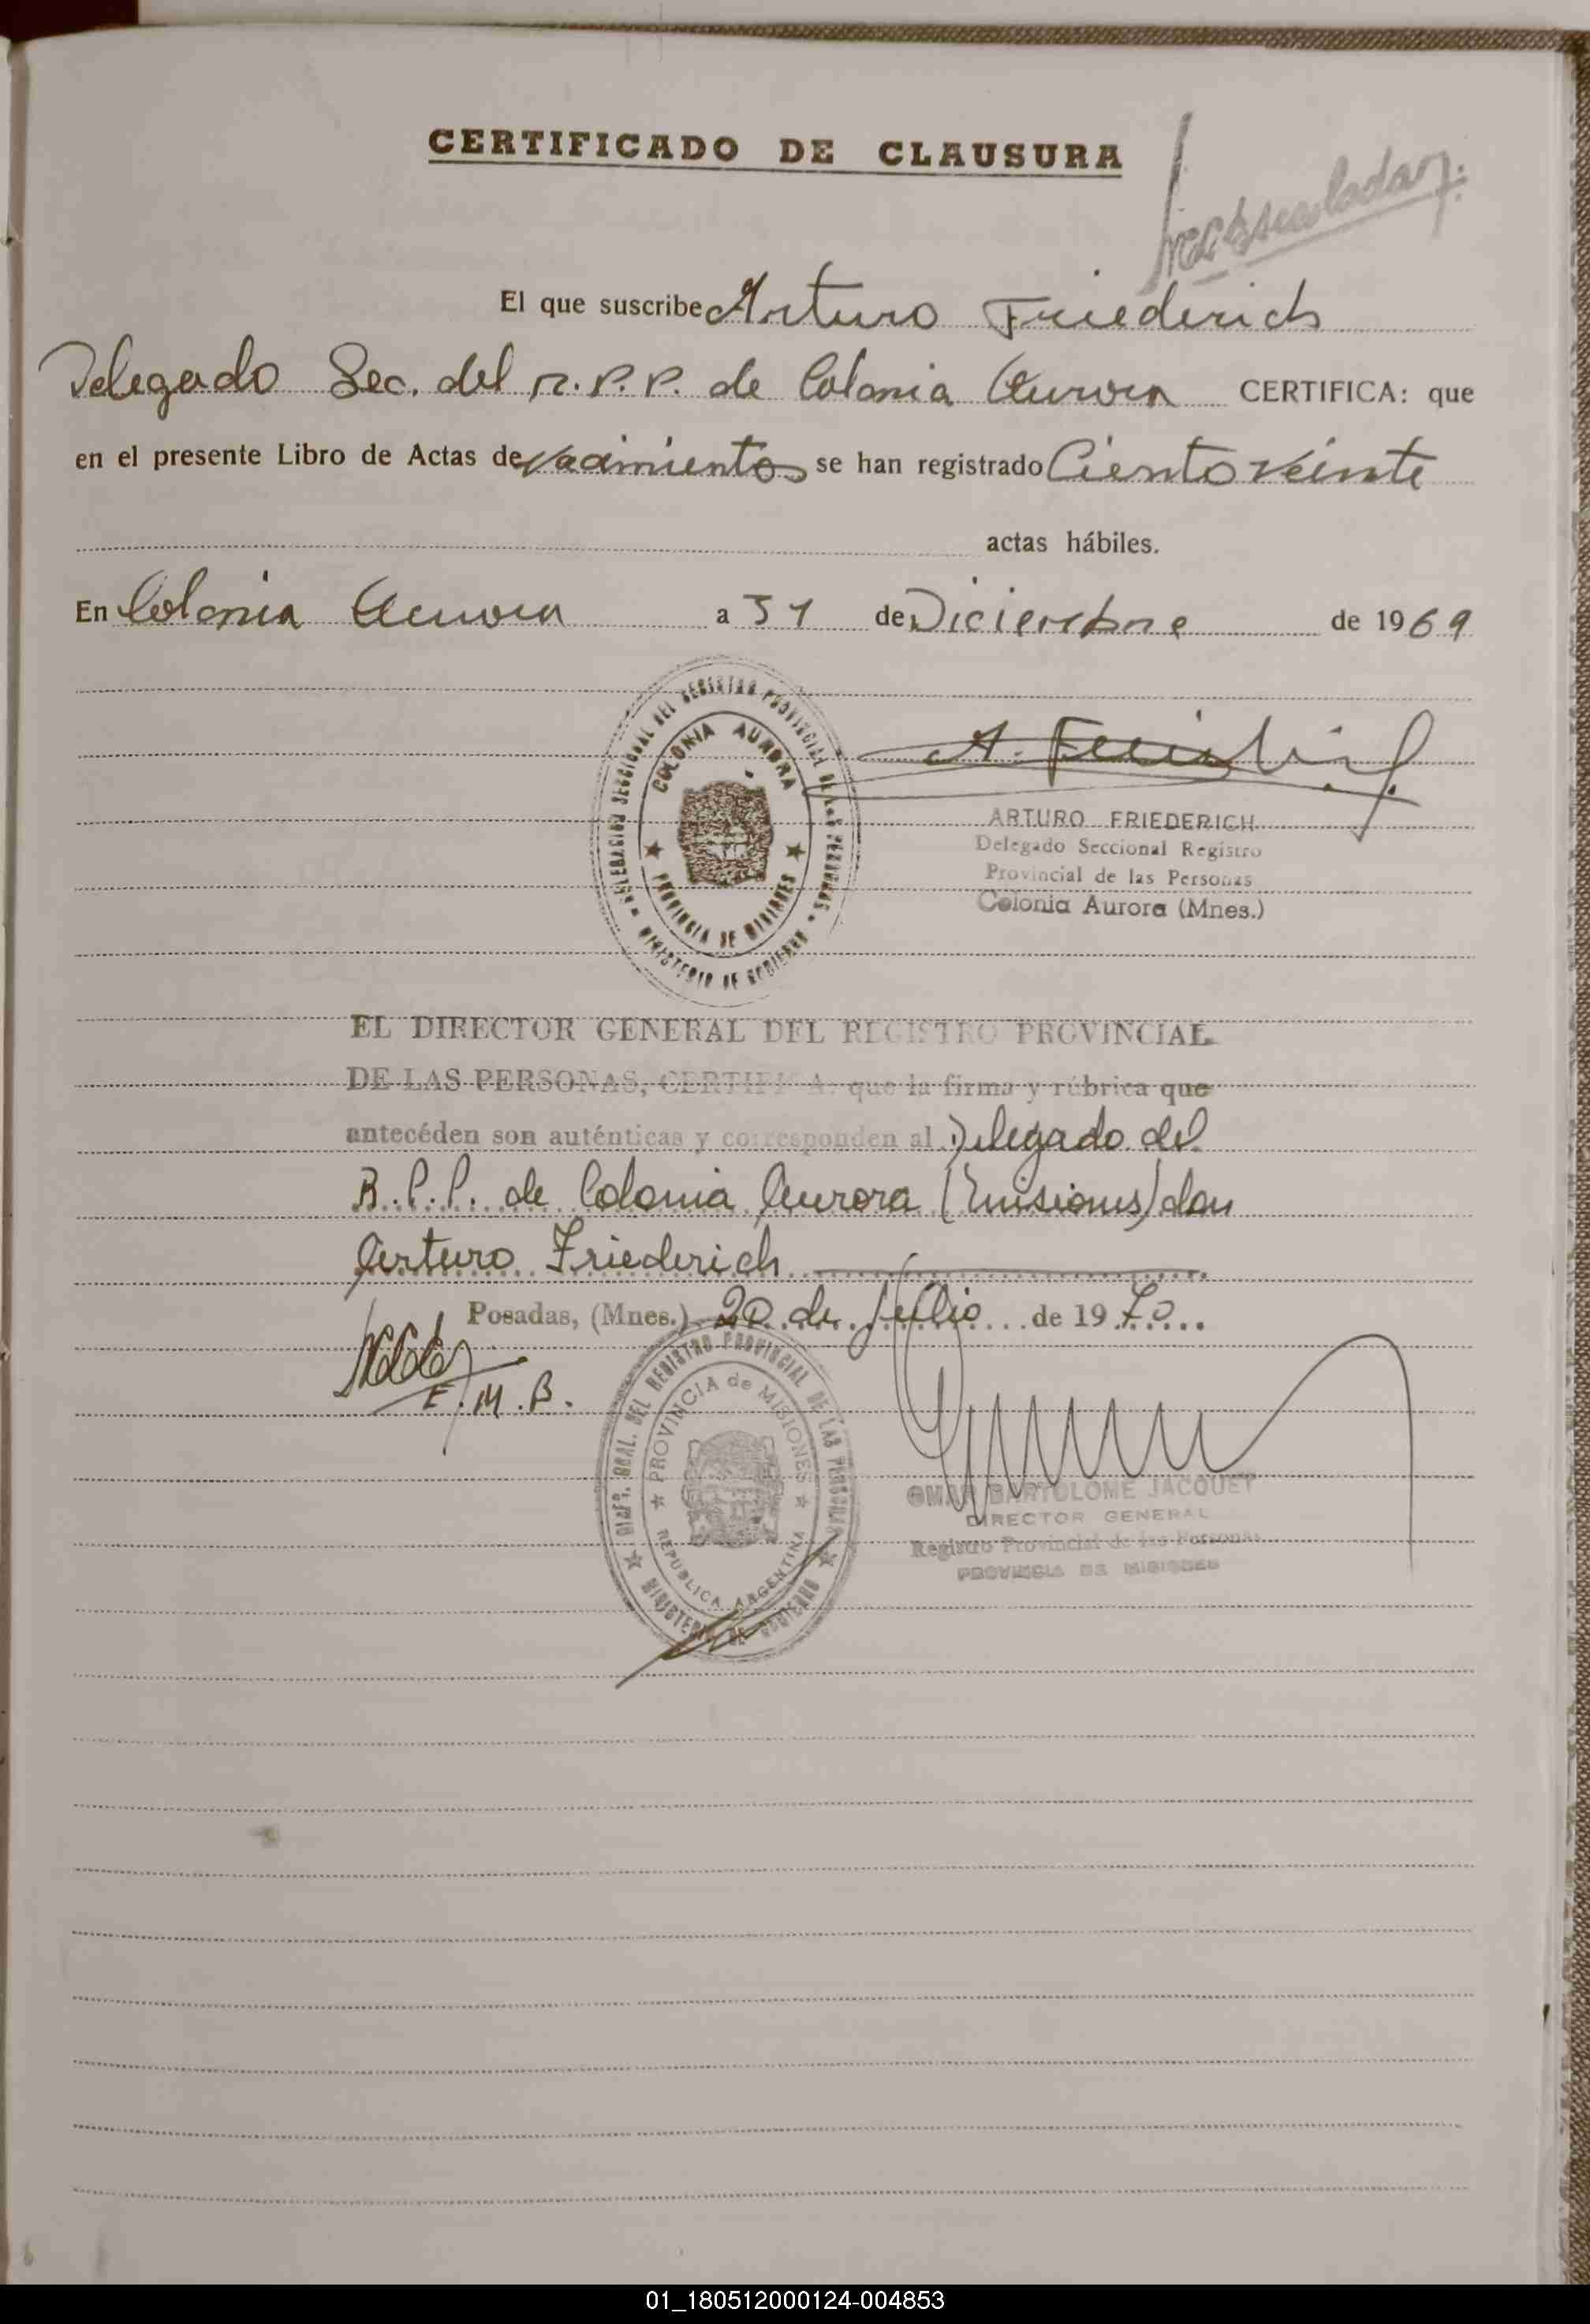 CERTIFICADO DE CLAUSURA
El que suscribe Arturo Friederich
Delegado Sec. del R.P.P. de Colonia Aurora CERTIFICA: que
en el presente Libro de Actas de Nacimientos se han registrado Ciento veinte
actas hábiles.
En Colonia Aurora a 31 de Diciembre de 1969
DELEGACION SECCIONAL DEL REGISTRO PROVINCIAL DE LAS PERSONAS
COLONIA AURORA
PROVINCIA DE MISIONES
MINISTERIO DE GOBIERNO
ARTURO FRIEDERICH
Delegado Seccional Registro
Provincial de las Personas
Colonia Aurora (Mnes.)
EL DIRECTOR GENERAL DEL REGISTRO PROVINCIAL
DE LAS PERSONAS, CERTIFICA: que la firma y rúbrica que
antecéden son auténticas y corresponden al Delegado del
R.P.P. de Colonia Aurora (Misiones) don
Arturo Friederich
Posadas, (Mnes.) 20 de Julio de 1970
E.M.B.
GRAL. DEL REGISTRO PROVINCIAL DE LAS PERSONAS
PROVINCIA de MISIONES
REPUBLICA ARGENTINA
MINISTERIO DE GOBIERNO
OMAR BARTOLOME JACQUET
DIRECTOR GENERAL
Registro Provincial de las Personas
PROVINCIA DE MISIONES
01_180512000124-004853